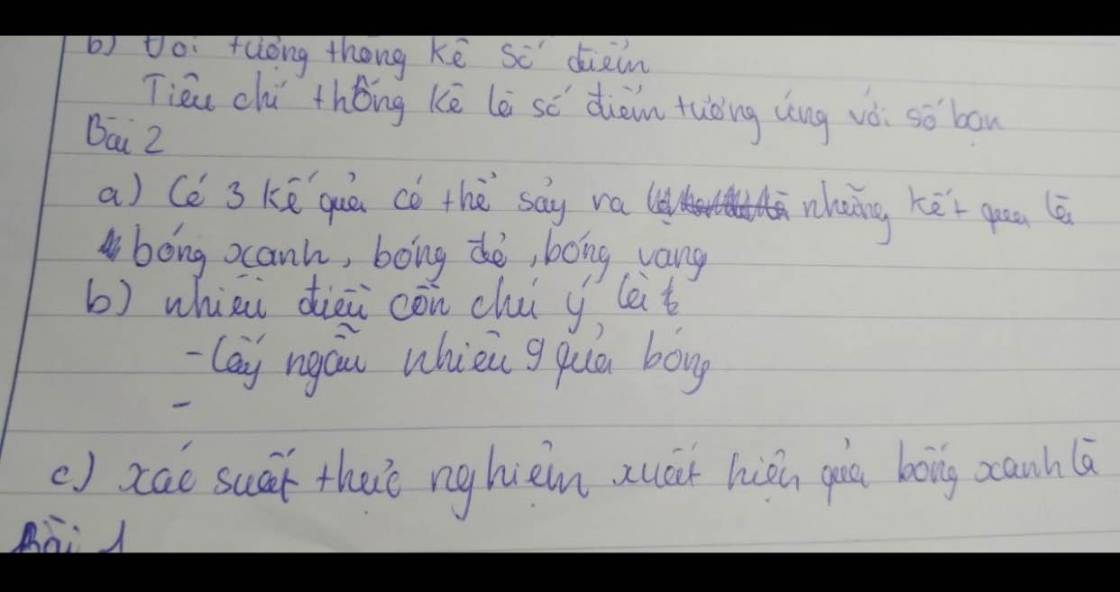 b) Đối tượng thống kê số điểm
Tiêu chí thống kê là số điểm tương ứng với số bạn
Bài 2
a) Có 3 kế quả có thể sảy ra những kết qua là
bóng xanh, bóng đỏ, bóng vang
b) nhiều điều cần chú ý là
- Lấy ngẫu nhiêu 9 quả bóng
-
c) xác suất thực nghiệm xuất hiện quả bóng xanh là
Bài 1